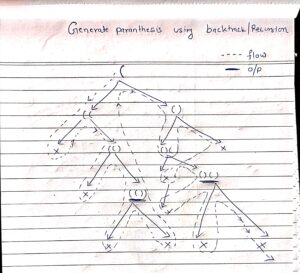 Generate paranthesis using backtrack/Recursion
---- flow
— o/p
(
(( ()
x (() ()( x
x (()) x ()()
x x x x